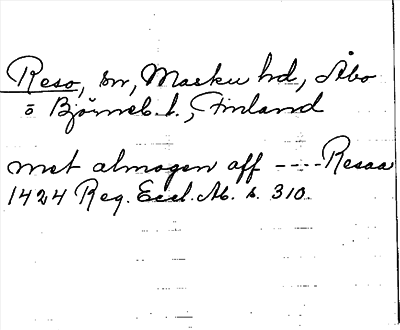 Reso, sn, Masku hd, Åbo
o Björneb. l., Finland
met almogen aff ----Resaa
1424 Reg. Eccl. Ab. s. 310.